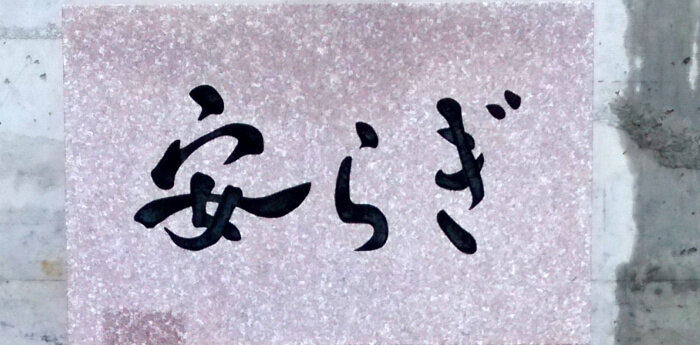 安らぎ